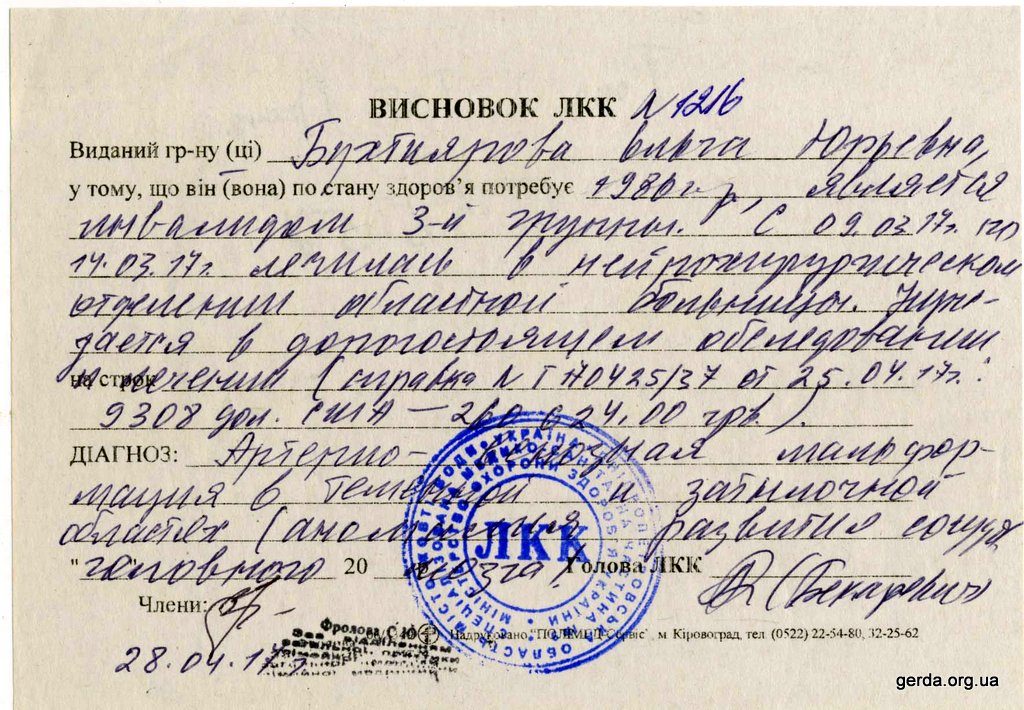 ВИСНОВОК ЛКК N 1216
Виданий гр-ну (ці) Бухтиярова Ольга Юрьевна,
у тому, що він (вона) по стану здоров'я потребує 1986 г.р., является
инвалидом 3-й группы. С 09.03.17г. по
14.03.17г. лечилась в нейрохирургическом
отделении областной больницы. Нуж-
дается в дорогостоящем обследовании
на строк и лечении (справка N Т170425/37 от 25.04.17г.
9308 дол. США — 260 624,00 грв.).
ДІАГНОЗ: Артерио- мальфор-
мация в теменной и затылочной
областях (аномалия развития сосудов
" головного 20 мозга) Голова ЛКК (Бекаревич)
Члени:
Фролова С Ю Надруковано "ПОЛІМЕД-Сервіс" м Кіровоград, тел (0522) 22-54-80, 32-25-62
28.04.17г.
ЛКК
gerda.org.ua